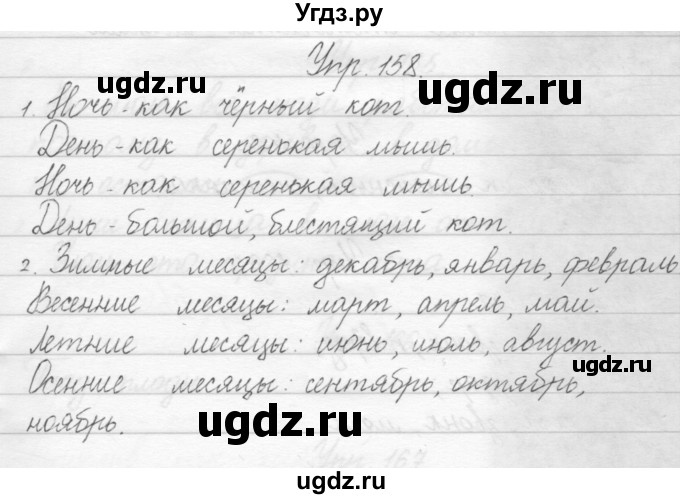 Угдз.ру
ugdz.ru
Упр. 158.
1. Ночь - как чёрный кот.
ugdz.ru
День - как серенькая мышь.
Ночь - как серенькая мышь.
ugdz.ru
День - большой, блестящий кот.
2. Зимние месяцы: декабрь, январь, февраль
Весенние месяцы: март, апрель, май.
ugdz.ru
Летние месяцы: июнь, июль, август.
ugdz.ru
Осенние месяцы: сентябрь, октябрь,
ugdz.ru
ноябрь.
Упр 167
ugdz.ru